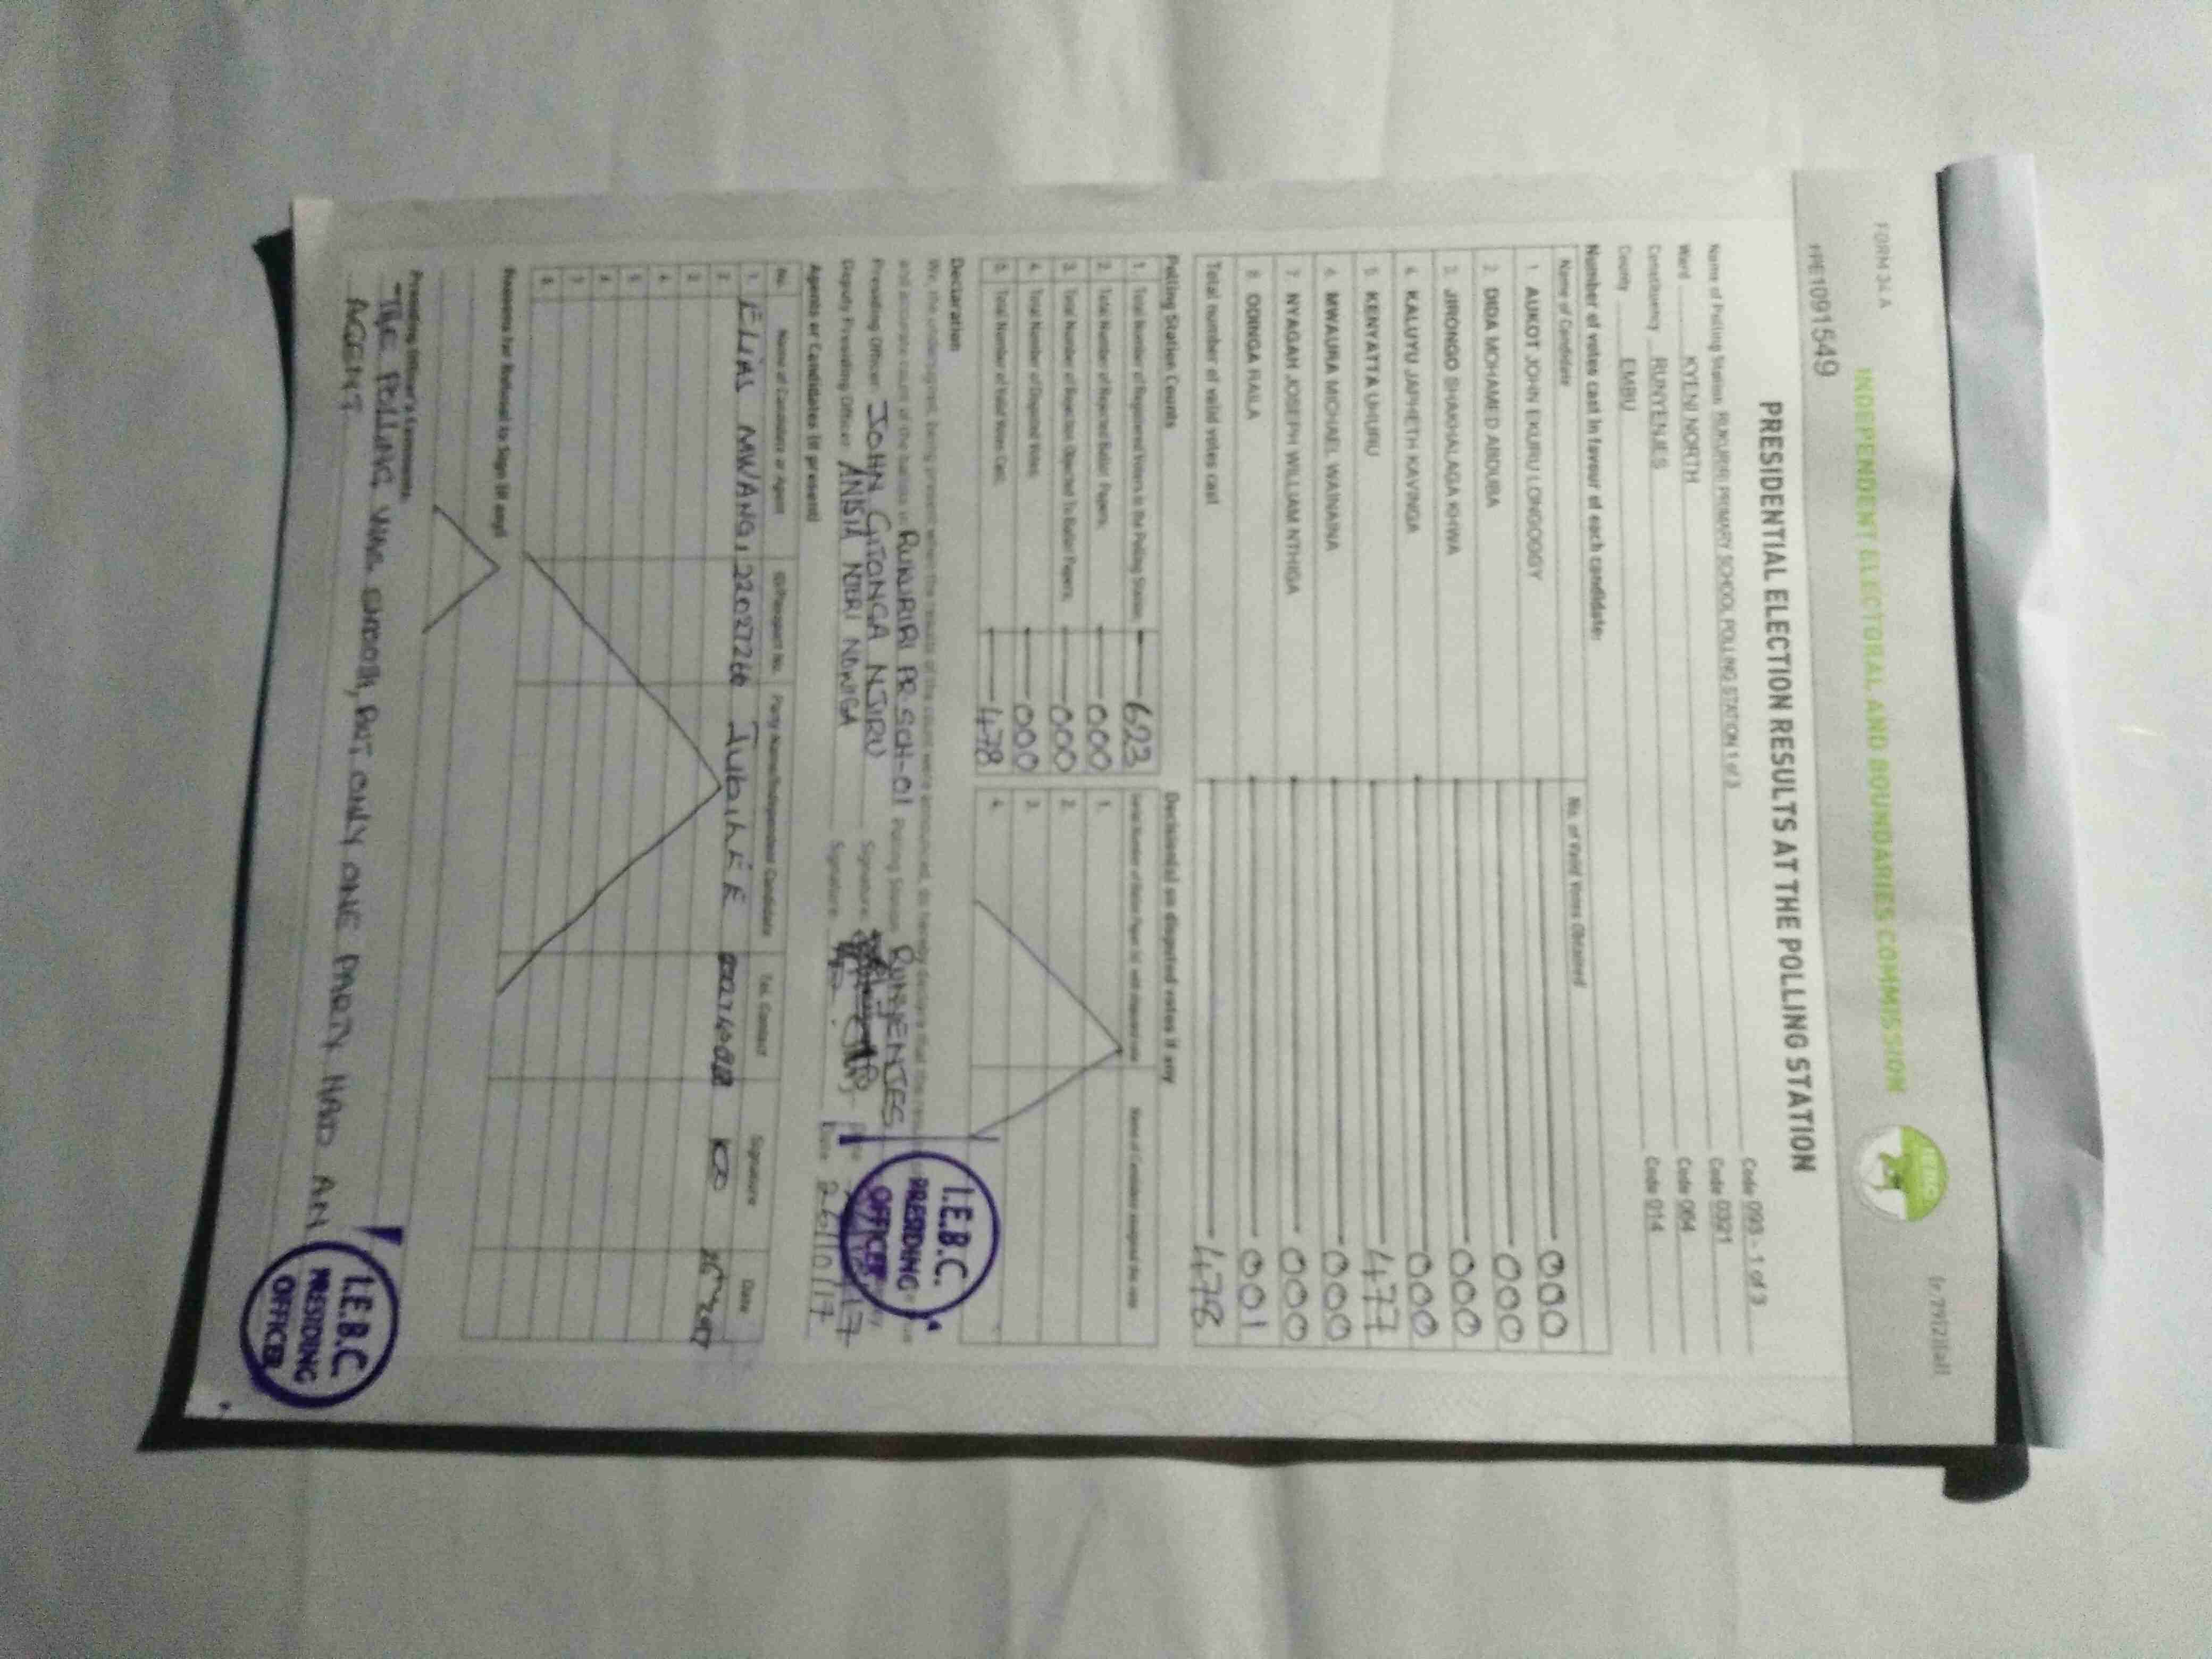 FORM 34 A
(r.79(2)(a))
INDEPENDENT ELECTORAL AND BOUNDARIES COMMISSION
IEBC
PRE1091549
PRESIDENTIAL ELECTION RESULTS AT THE POLLING STATION
Name of Polling Station RUKURIRI PRIMARY SCHOOL POLLING STATION 1 of 3 Code 093 - 1 of 3
Ward KYENI NORTH Code 0321
Constituency RUNYENJES Code 064
County EMBU Code 014
Number of votes cast in favour of each candidate:
Name of Candidate No. of Valid Votes Obtained
1. AUKOT JOHN EKURU LONGOGGY 000
2. DIDA MOHAMED ABDUBA 000
3. JIRONGO SHAKHALAGA KHWA 000
4. KALUYU JAPHETH KAVINGA 000
5. KENYATTA UHURU 477
6. MWAURA MICHAEL WAINAINA 000
7. NYAGAH JOSEPH WILLIAM NTHIGA 000
8. ODINGA RAILA 001
Total number of valid votes cast 478
Polling Station Counts
1. Total Number of Registered Voters in the Polling Station 623
2. Total Number of Rejected Ballot Papers 000
3. Total Number of Rejection Objected To Ballot Papers 000
4. Total Number of Disputed Votes 000
5. Total Number of Valid Votes Cast 478
Decision(s) on disputed votes if any
1.
2.
3.
4.
Declaration
We, the undersigned, being present when the results of the count were announced, do hereby declare that the
and accurate count of the ballots in RUKURIRI PR SCH-01 Polling Station RUNYENJES
Presiding Officer JOHN GITONGA NJIRU Signature
Deputy Presiding Officer ANISIA NJERI NDWIGA Signature Date 26/10/17
I.E.B.C.
PRESIDING
OFFICER
Agents or Candidates (if present)
No. Name of Candidate or Agent ID/Passport No. Party Name/Independent Candidate Tel. Contact Signature Date
1. ELIAS MWANGI 22027266 JubiLEE
2.
3.
4.
5.
6.
7.
8.
Reasons for Refusal to Sign (if any)
Presiding Officer's Comments
THE POLLING WAS SMOOTH, BUT ONLY ONE PARTY HAD AN
AGENT.
I.E.B.C
PRESIDING
OFFICER